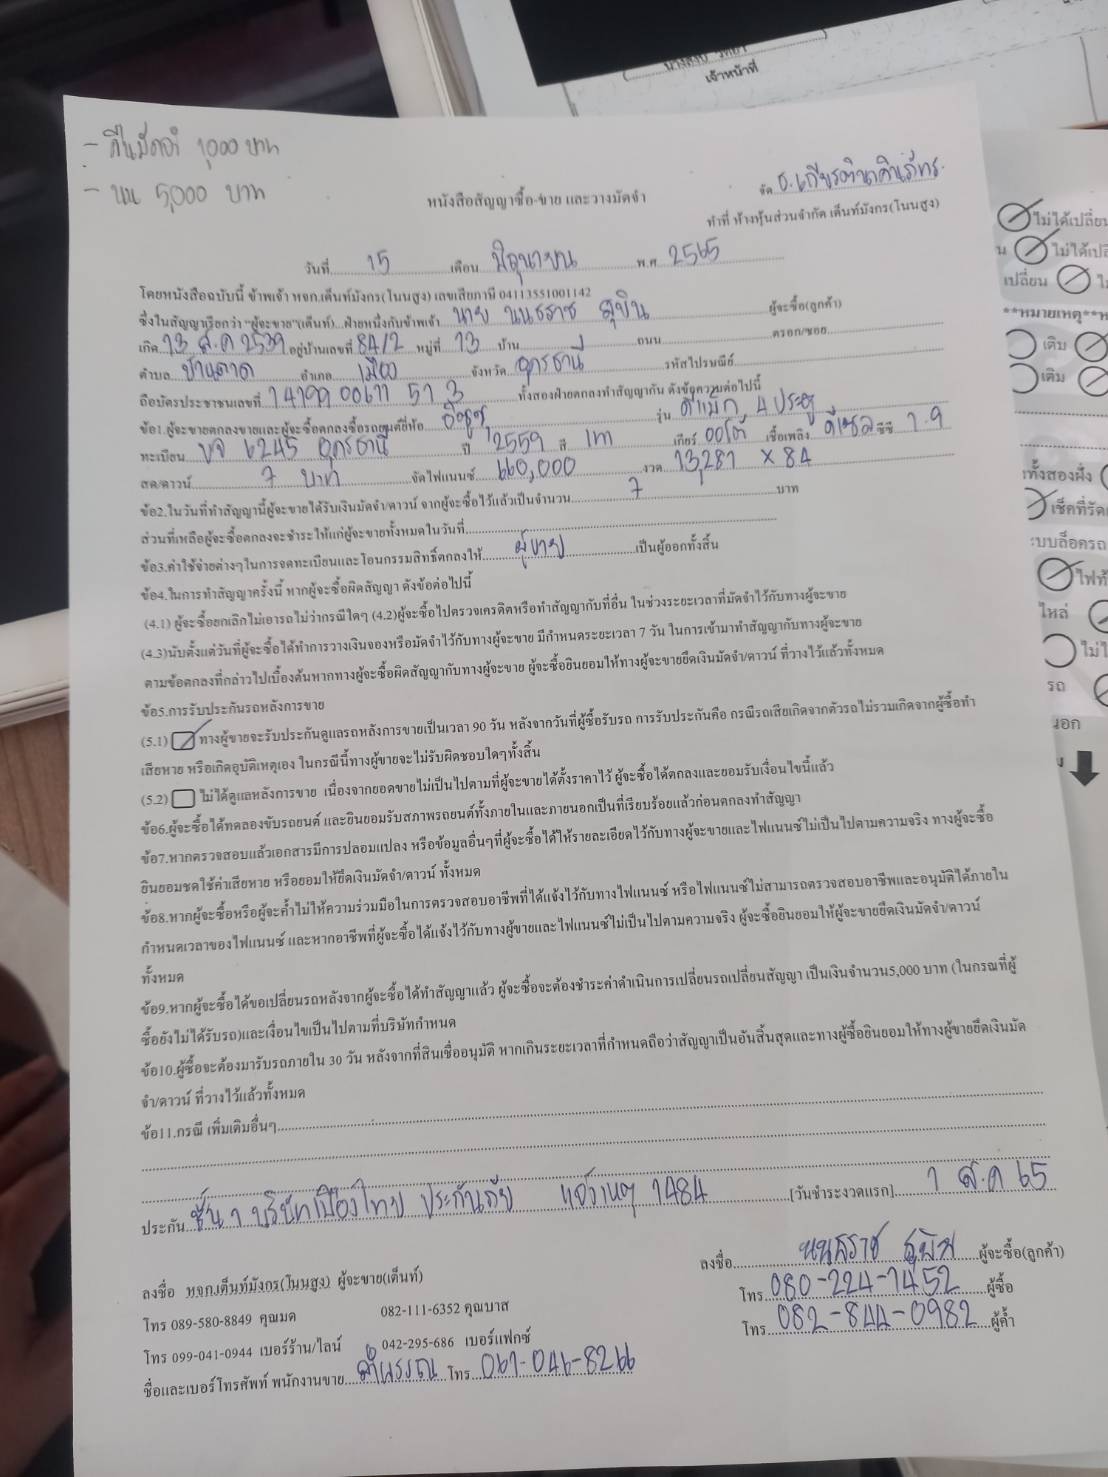 เจ้าหน้าที่
- คืนมัดจำ 1,000 บาท
- แนะ 5,000 บาท
จัด ธ.เกียรตินาคินภัทร
หนังสือสัญญาซื้อ-ขาย และวางมัดจำ
ทำที่ ห้างหุ้นส่วนจำกัด เต็นท์มังกร(โนนสูง)
วันที่ 15 เดือน มิถุนายน พ.ศ. 2565
โดยหนังสือฉบับนี้ ข้าพเจ้า หจก.เต็นท์มังกร(โนนสูง) เลขเสียภาษี 04113551001142
ซึ่งในสัญญาเรียกว่า "ผู้จะขาย"(เต็นท์)...ฝ่ายหนึ่งกับข้าพเจ้า นาย ผู้จะซื้อ(ลูกค้า)
เกิด 13 ส.ค 2539 อยู่บ้านเลขที่ 84/2 หมู่ที่ 13 บ้าน ถนน ตรอก/ซอย
ตำบล บ้านตาด อำเภอ เมือง จังหวัด อุดรธานี รหัสไปรษณีย์
ถือบัตรประชาชนเลขที่ 14199 00611 51 3 ทั้งสองฝ่ายตกลงทำสัญญากัน ดังข้อความต่อไปนี้
ข้อ1.ผู้จะขายตกลงขายและผู้จะซื้อตกลงซื้อรถยนต์ยี่ห้อ อีซูซุ รุ่น ดีแม็ก 4 ประตู
ทะเบียน บจ 6245 อุดรธานี ปี 2559 สี เทา เกียร์ ออโต้ เชื้อเพลิง ดีเซล ซีซี 1.9
สด/ดาวน์ 7 บาท จัดไฟแนนซ์ 660,000 งวด 13,281 X 84
ข้อ2.ในวันที่ทำสัญญานี้ผู้จะขายได้รับเงินมัดจำ/ดาวน์ จากผู้จะซื้อไว้แล้วเป็นจำนวน 7 บาท
ส่วนที่เหลือผู้จะซื้อตกลงจะชำระให้แก่ผู้จะขายทั้งหมดในวันที่
ข้อ3.ค่าใช้จ่ายต่างๆในการจดทะเบียนและโอนกรรมสิทธิ์ตกลงให้ ผู้ขาย เป็นผู้ออกทั้งสิ้น
ข้อ4.ในการทำสัญญาครั้งนี้ หากผู้จะซื้อผิดสัญญา ดังข้อต่อไปนี้
(4.1) ผู้จะซื้อยกเลิกไม่เอารถไม่ว่ากรณีใดๆ (4.2)ผู้จะซื้อไปตรวจเครดิตหรือทำสัญญากับที่อื่น ในช่วงระยะเวลาที่มัดจำไว้กับทางผู้จะขาย
(4.3)นับตั้งแต่วันที่ผู้จะซื้อได้ทำการวางเงินจองหรือมัดจำไว้กับทางผู้จะขาย มีกำหนดระยะเวลา 7 วัน ในการเข้ามาทำสัญญากับทางผู้จะขาย
ตามข้อตกลงที่กล่าวไปเบื้องต้นหากทางผู้จะซื้อผิดสัญญากับทางผู้จะขาย ผู้จะซื้อยินยอมให้ทางผู้จะขายยึดเงินมัดจำ/ดาวน์ ที่วางไว้แล้วทั้งหมด
ข้อ5.การรับประกันรถหลังการขาย
(5.1) ทางผู้ขายจะรับประกันดูแลรถหลังการขายเป็นเวลา 90 วัน หลังจากวันที่ผู้ซื้อรับรถ การรับประกันคือ กรณีรถเสียเกิดจากตัวรถไม่รวมเกิดจากผู้ซื้อทำ
เสียหาย หรือเกิดอุบัติเหตุเอง ในกรณีนี้ทางผู้ขายจะไม่รับผิดชอบใดๆทั้งสิ้น
(5.2) ไม่ได้ดูแลหลังการขาย เนื่องจากยอดขายไม่เป็นไปตามที่ผู้จะขายได้ตั้งราคาไว้ ผู้จะซื้อได้ตกลงและยอมรับเงื่อนไขนี้แล้ว
ข้อ6.ผู้จะซื้อได้ทดลองขับรถยนต์ และยินยอมรับสภาพรถยนต์ทั้งภายในและภายนอกเป็นที่เรียบร้อยแล้วก่อนตกลงทำสัญญา
ข้อ7.หากตรวจสอบแล้วเอกสารมีการปลอมแปลง หรือข้อมูลอื่นๆที่ผู้จะซื้อได้ให้รายละเอียดไว้กับทางผู้จะขายและไฟแนนซ์ไม่เป็นไปตามความจริง ทางผู้จะซื้อ
ยินยอมชดใช้ค่าเสียหาย หรือยอมให้ยึดเงินมัดจำ/ดาวน์ ทั้งหมด
ข้อ8.หากผู้จะซื้อหรือผู้จะค้ำไม่ให้ความร่วมมือในการตรวจสอบอาชีพที่ได้แจ้งไว้กับทางไฟแนนซ์ หรือไฟแนนซ์ไม่สามารถตรวจสอบอาชีพและอนุมัติได้ภายใน
กำหนดเวลาของไฟแนนซ์ และหากอาชีพที่ผู้จะซื้อได้แจ้งไว้กับทางผู้ขายและไฟแนนซ์ไม่เป็นไปตามความจริง ผู้จะซื้อยินยอมให้ผู้จะขายยึดเงินมัดจำ/ดาวน์
ทั้งหมด
ข้อ9.หากผู้จะซื้อได้ขอเปลี่ยนรถหลังจากผู้จะซื้อได้ทำสัญญาแล้ว ผู้จะซื้อจะต้องชำระค่าดำเนินการเปลี่ยนรถเปลี่ยนสัญญา เป็นเงินจำนวน5,000 บาท (ในกรณีที่ผู้
ซื้อยังไม่ได้รับรถ)และเงื่อนไขเป็นไปตามที่บริษัทกำหนด
ข้อ10.ผู้ซื้อจะต้องมารับรถภายใน 30 วัน หลังจากที่สินเชื่ออนุมัติ หากเกินระยะเวลาที่กำหนดถือว่าสัญญาเป็นอันสิ้นสุดและทางผู้ซื้อยินยอมให้ทางผู้ขายยึดเงินมัด
จำ/ดาวน์ ที่วางไว้แล้วทั้งหมด
ข้อ11.กรณี เพิ่มเติมอื่นๆ
ประกัน ชั้น 1 บริษัทเมืองไทย ประกันภัย แจ้งเหตุ 1484 [วันชำระงวดแรก] 1 ส.ค 65
ลงชื่อ ผู้จะซื้อ(ลูกค้า)
ลงชื่อ หจก.เต็นท์มังกร(โนนสูง) ผู้จะขาย(เต็นท์)
โทร 080-224-7452 ผู้ซื้อ
โทร 089-580-8849 คุณมด 082-111-6352 คุณบาส
โทร 082-844-0982 ผู้ค้ำ
โทร 099-041-0944 เบอร์ร้าน/ไลน์ 042-295-686 เบอร์แฟกซ์
ชื่อและเบอร์โทรศัพท์ พนักงานขาย โทร 061-046-8266
ไม่ได้เปลี่ยน
ไม่ได้เปลี่
เปลี่ยน
**หมายเหตุ**ห
เติม
เติม
ทั้งสองฝั่ง
เช็คที่รัด
ระบบล็อครถ
ไฟท้
ไหล่
ไม่ไ
รถ
นอก